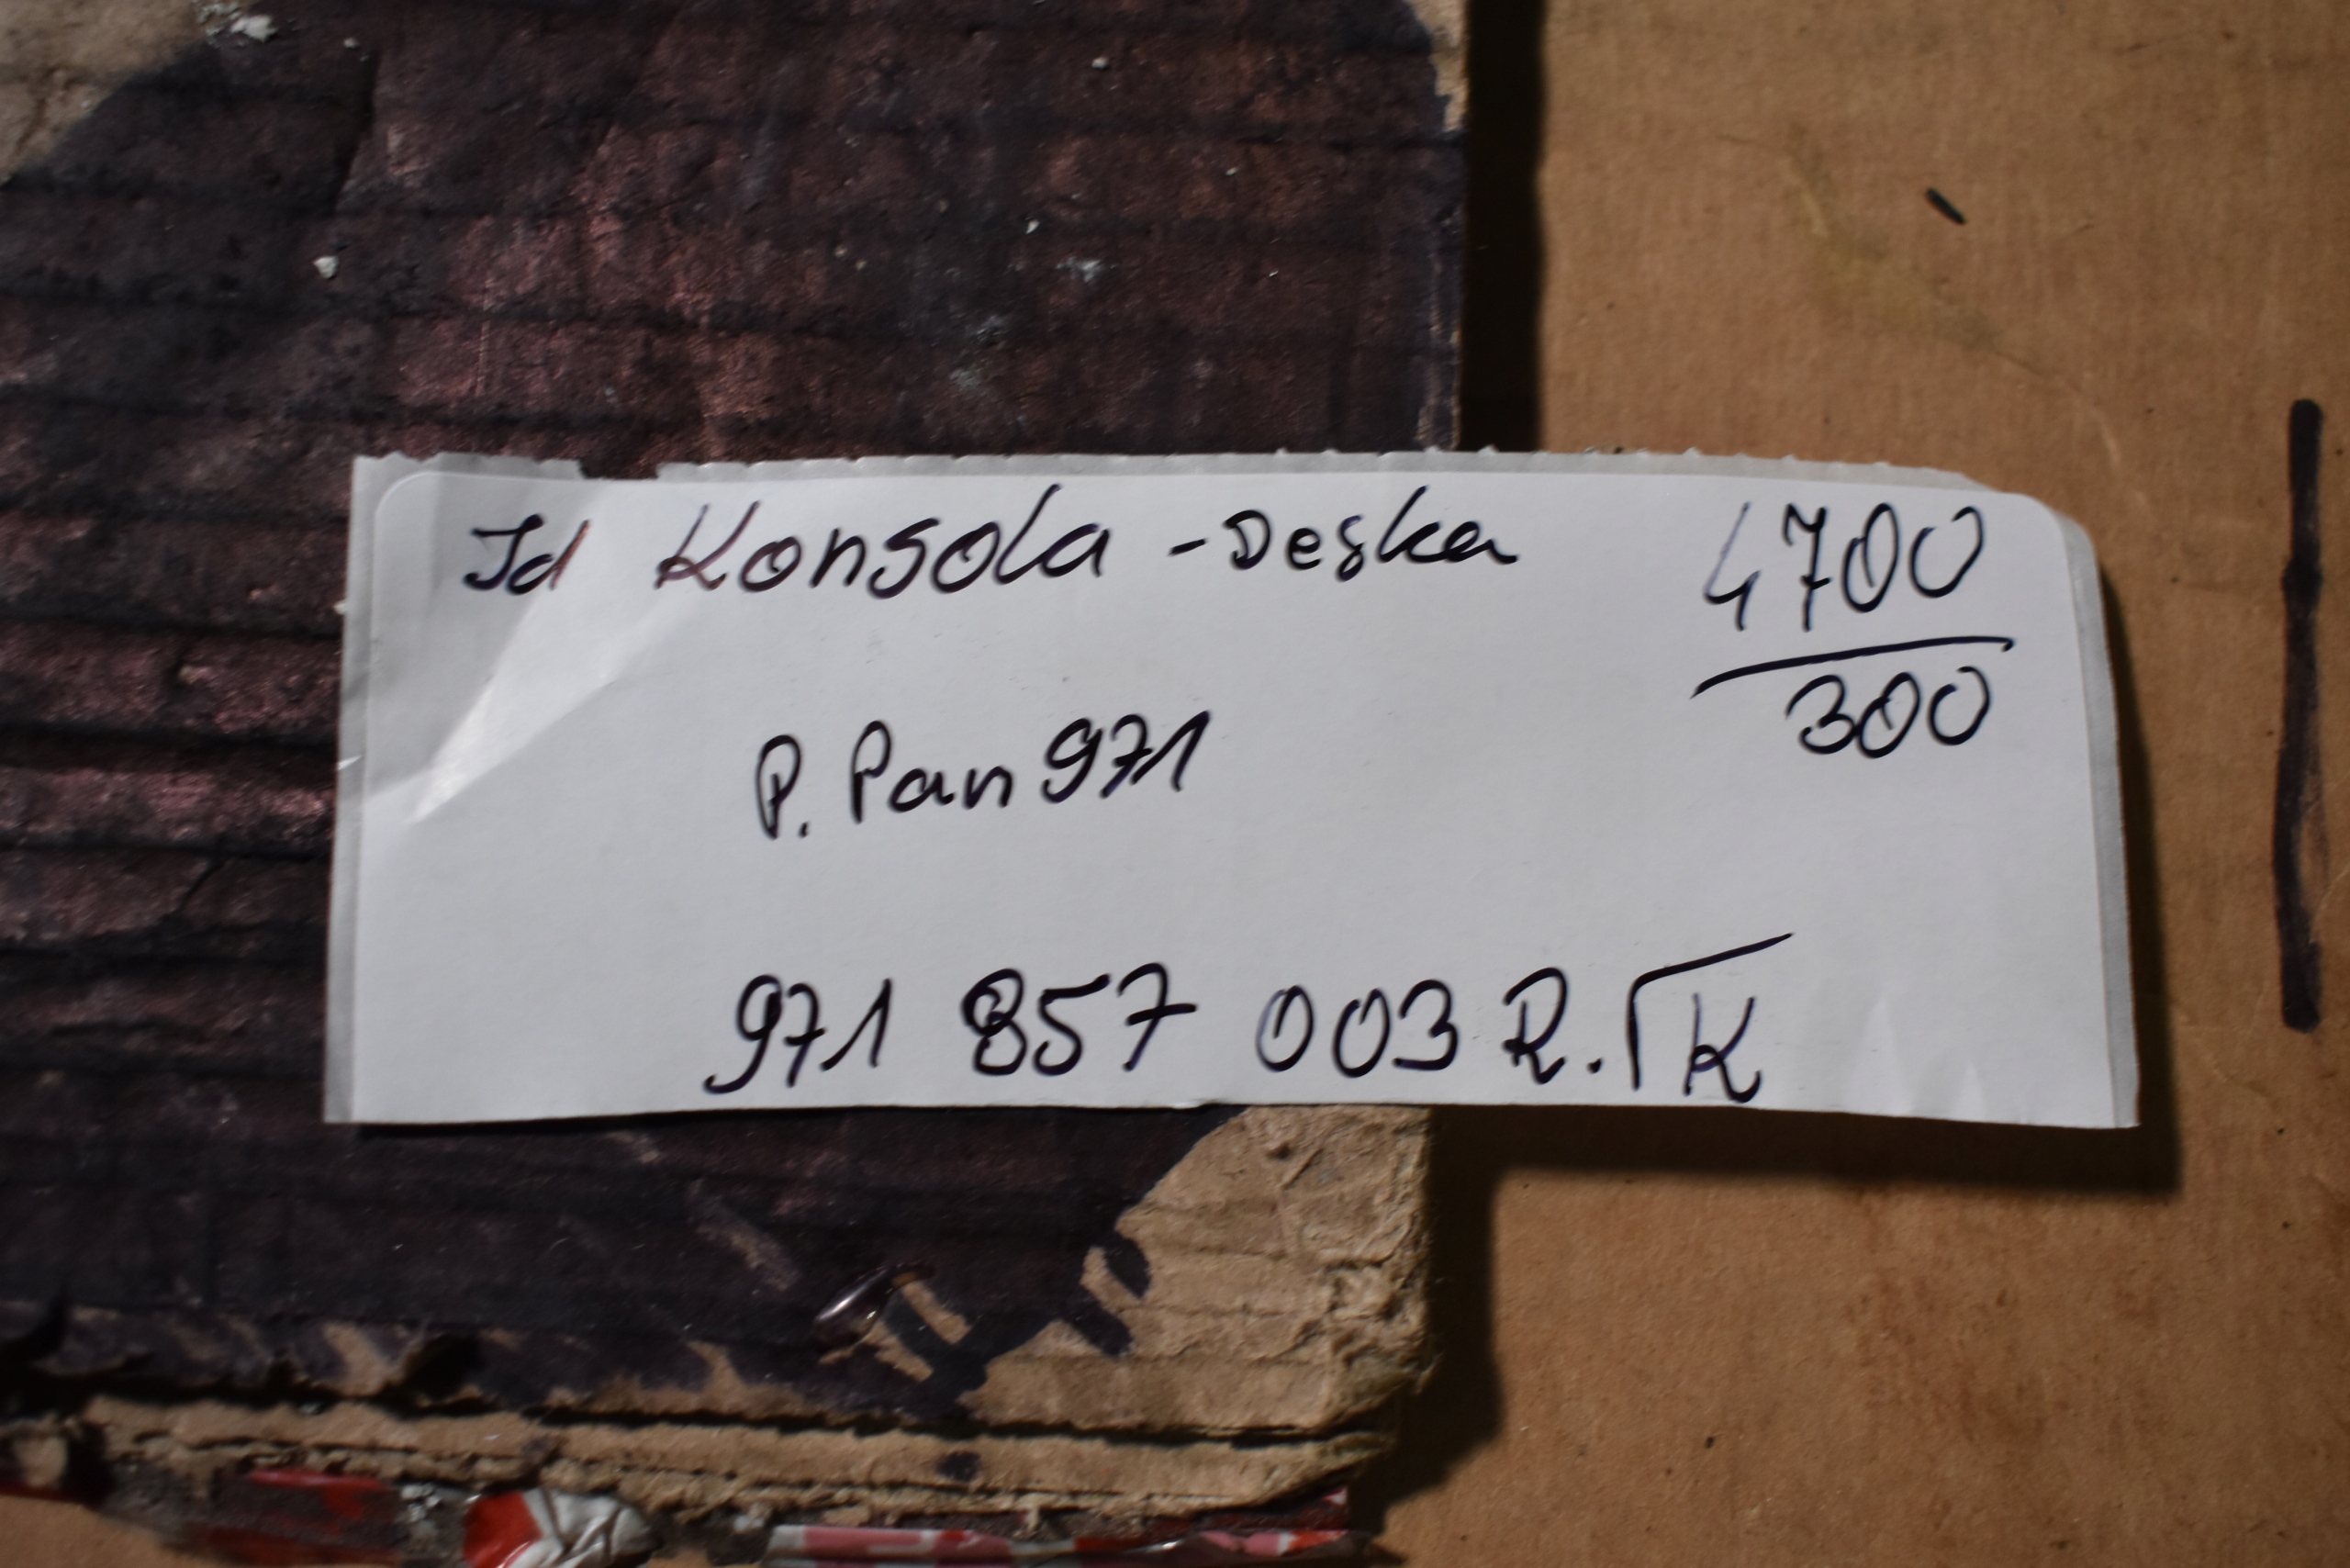 Id Konsola - Deska 4700
300
P. Pan 971
971 857 003 R. ΓK